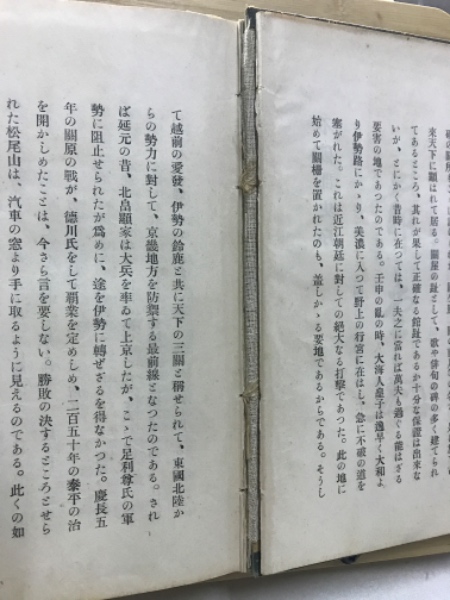 來天下に顯はれて居る。關屋の趾として、歌や俳句の碑の多く建てられ
てあるところ、其れが果して正確なる館趾であるか十分な保證は出來な
いが、とにかく昔時に在つては、一夫之に當れば萬夫も過ぐる能はざる
要害の地であつたのである。壬申の亂の時、大海人皇子は逸早く大和よ
り伊勢路にかゝり、美濃に入つて野上の行宮に在はし、急に不破の道を
塞がれた。これは近江朝廷に對しての絶大なる打擊であつた。此の地に
始めて關柵を置かれたのも、蓋しかゝる要地であるからである。そうし
て越前の愛發、伊勢の鈴鹿と共に天下の三關と稱せられて、東國北陸か
らの勢力に對して、京畿地方を防禦する最前線となつたのである。され
ば延元の昔、北畠顯家は大兵を率ゐて上京したが、こゝで足利尊氏の軍
勢に阻止せられたが爲めに、途を伊勢に轉ぜざるを得なかつた。慶長五
年の關原の戰が、德川氏をして覇業を定めしめ、二百五十年の泰平の治
を開かしめたことは、今さら言を要しない。勝敗の決するところとせら
れた松尾山は、汽車の窓より手に取るように見えるのである。此くの如